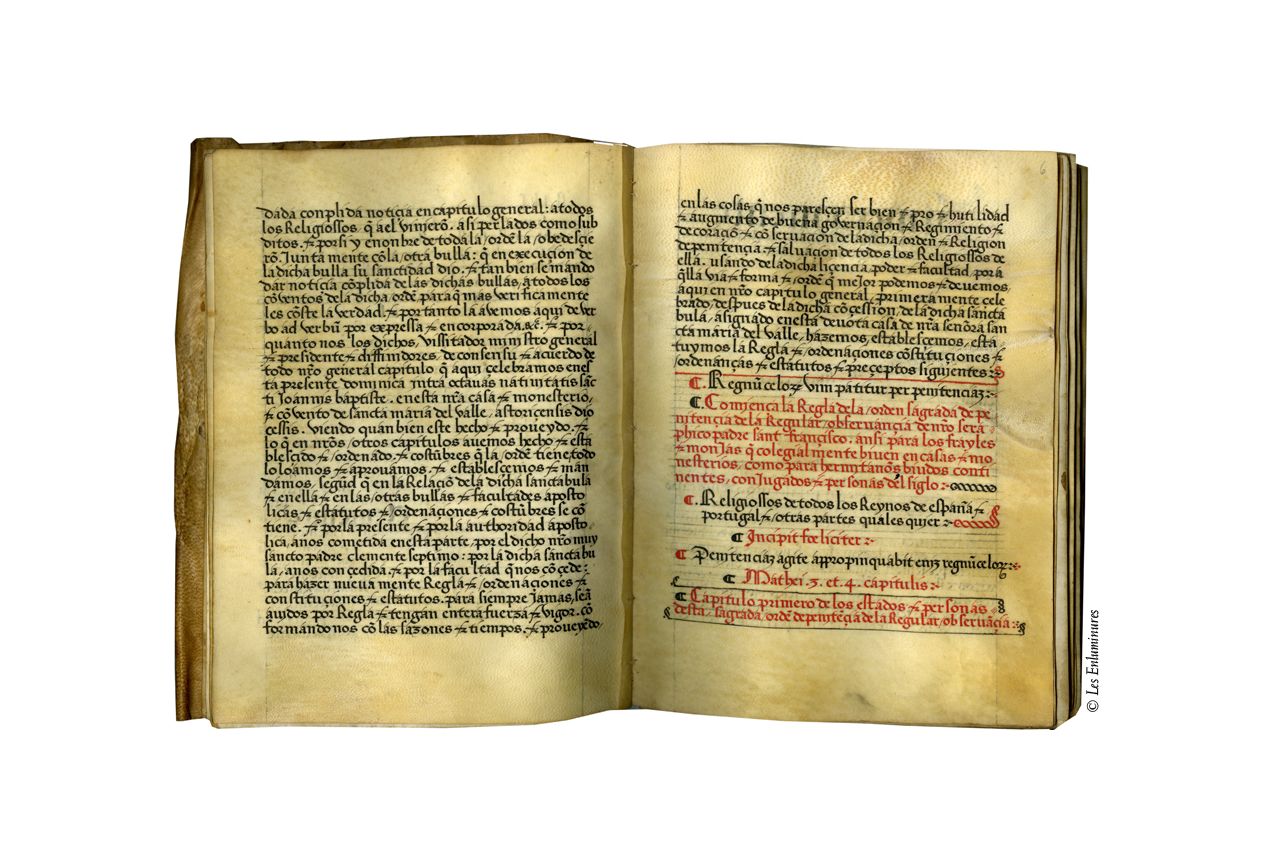 dada conplida noticia en capitulo general: a todos
los Religiossos q̃ a el vinierõ. asi perlados como sub
ditos. ⁊ por si y en onbre de toda la /ordẽ la /obedescie
rõ. Junta mente cõ la /otra bulla: q̃ en execucion de
la dicha bulla su sanctidad dio. ⁊ tan bien se mando
dar noticia cõplida de las dichas bullas, a todos los
cõventos de la dicha /ordẽ. para q̃ mas verifica mente
les cõste la verdad. ⁊ por tanto la avemos aqui de ver
bo ad verbũ por expressa ⁊ encorporada. ⁊ por
quanto nos los dichos, vissitador ministro general
⁊ presidente ⁊ diffinidores, de consensu ⁊ acuerdo de
todo nr̃o general capitulo q̃ aqui çelebramos en es
ta presente dominica intra octauas nativitatis sãc
ti Joannis baptiste. en esta nr̃a casa ⁊ monesterio,
⁊ cõvento de sancta maria del valle, astoricensis dio
cessis. viendo quan bien este hecho ⁊ proueydo. ⁊
lo q̃ en nr̃os /otros capitulos avemos hecho ⁊ esta
blescido ⁊ /ordenado. ⁊ costũbres q̃ la /ordẽ tiene. todo
lo loamos ⁊ aprovamos. ⁊ establescemos ⁊ man
damos, segũd q̃ en la Relaciõ de la dicha sancta bula
⁊ en ella ⁊ en las /otras bullas ⁊ facultades aposto
licas ⁊ estatutos ⁊ /ordenaciones ⁊ costũbres se cõ
tiene. ⁊ por la presente ⁊ por la authoridad aposto
lica, a nos cometida en esta parte, por el dicho nr̃o muy
sancto padre clemente septimo: por la dicha sancta bu
la, a nos conçedida. ⁊ por la facultad q̃ nos cõçede:
para hazer nueva mente Regla ⁊ /ordenaciones ⁊
constituciones ⁊ estatutos. para siempre jamas, seã
avidos por Regla ⁊ tengan entera fuerza ⁊ vigor. cõ
formando nos cõ las sazones ⁊ tiempos. ⁊ proveyẽdo
6
en las cosas q̃ nos paresçen ser bien ⁊ pro ⁊ hutilidad
⁊ augmento de buena governacion ⁊ Regimiento ⁊
de coraciõ ⁊ cõseruacion de la dicha /orden ⁊ Religion
de penitencia. ⁊ saluacion de todos los Religiosos de
ella. usando de la dicha licencia poder ⁊ facultad, por a
q̃lla via ⁊ forma ⁊ /ordẽ q̃ mejor podemos ⁊ devemos,
aqui en nr̃o capitulo general, primera mente cele
brado, despues de la dicha cõçession, de la dicha sancta
bula, asignado en esta devota casa de nr̃a señora san
cta maria del valle, hazemos, establescemos, esta
tuymos la Regla ⁊ /ordenaciones cõstituciones ⁊
/ordenanças ⁊ estatutos ⁊ preceptos siguientes
¶. Regnũ celoꝝ vim patitur per penitenciaz
¶. Comiença la Regla de la /orden sagrada de pe
nitencia de la Regular /obseruancia de nr̃o será
phico padre sant francisco. ansi para los frayles
⁊ monjas q̃ colegial mente biuen en casas ⁊ mo
nesterios, como para hermitanõs biudos conti
nentes, conjugados ⁊ personas del siglo
¶. Religiossos de todos los Reynos de españa ⁊
portugal ⁊ /otras partes quales quier
¶ Incipit fœliciter
¶ Penitenciaz agite appropinquabit eniz regnũ celoꝝ
¶ Mathei. 3. et. 4. capitulis
¶ Capitulo primero de los estados ⁊ personas
desta. sagrada, ordẽ de penitẽçia de la Regular /obseruãçia
© Les Enluminures